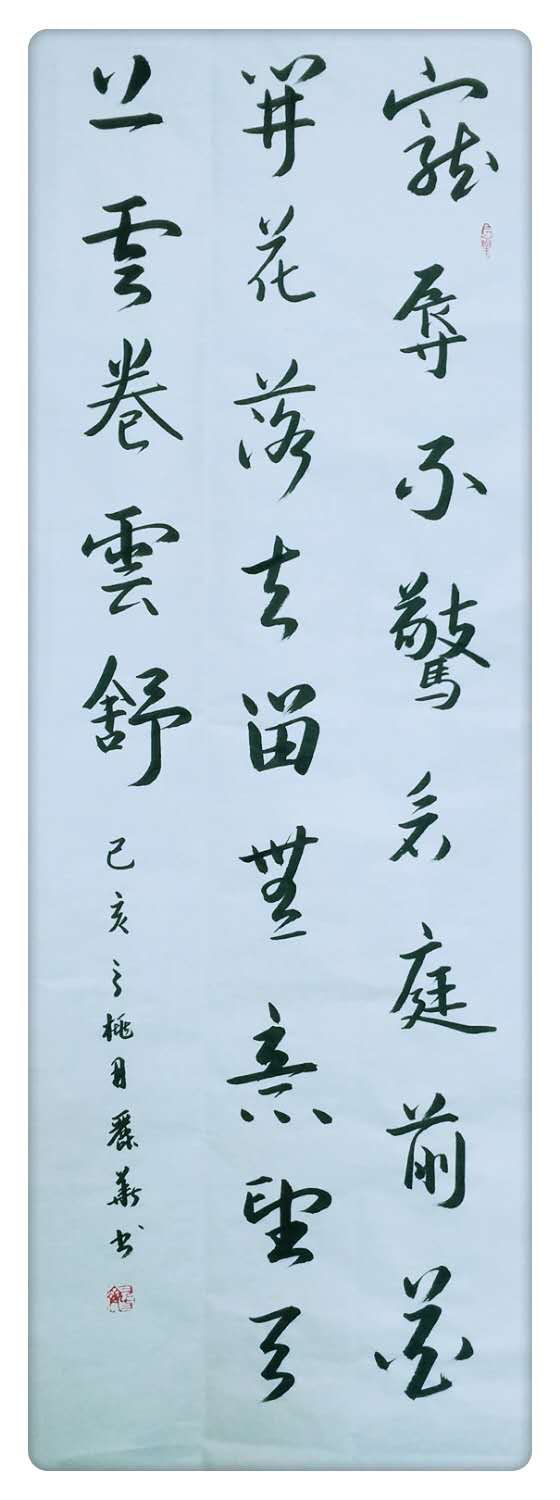 寵辱不驚看庭前花
開花落去留無意望天
上雲卷雲舒
己亥之桃月麗華書